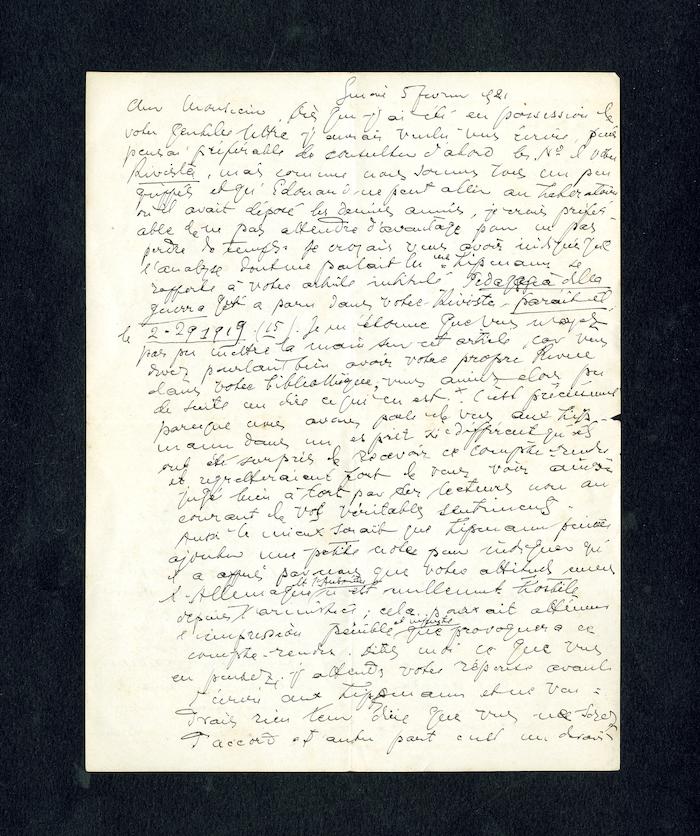 Genève 5 février 1921
Cher Monsieur, Dès que j'ai été en possession de
votre gentille lettre j'aurais voulu vous écrire, puis
pensai préférable de consulter d'abord les Nos de votre
Rivista, mais comme nous sommes tous un peu
grippés et qu'Edouard ne peut aller au laboratoire
où il avait déposé les derniers années, je crois préfér-
able de ne pas attendre d'avantage pour ne pas
perdre de temps. Je croyais vous avoir indiqué que
l'analyse dont me parlait les Lipmann se
rapporte à votre article intitulé Pedagogia della
guerra qui a paru dans votre Rivista, parait-il
le 2-29 1919 (15). Je m'étonne que vous n'ayez
pas pu mettre la main sur cet article, car vous
devez pourtant bien avoir votre propre Revue
dans votre bibliothèque, vous auriez alors pu
de suite me dire ce qu'il en est. C'est précisément
parceque nous avons parlé de vous aux Lipp-
mann dans un esprit si différent qu'ils
ont été surpris de recevoir ce compte-rendu
et regretteraient fort de vous voir ainsi
jugé bien à tort par des lecteurs non au
courant de vos véritables sentiments.
Aussi le mieux serait que Lipmann puisse
ajouter une petite note pour indiquer qu'
il a appris par nous que votre attitude envers
l'Allemagne et l'Autriche n'a été nullement hostile
depuis l'armistice; cela pourrait atténuer
l'impression pénible et injuste que provoquera ce
compte-rendu. Dites moi ce que vous
en pensez, j'attends votre réponse avant
d'écrire aux Lippmann et ne vou-
drais rien leur dire que vous ne soyez
d'accord et autre part c'est un droit